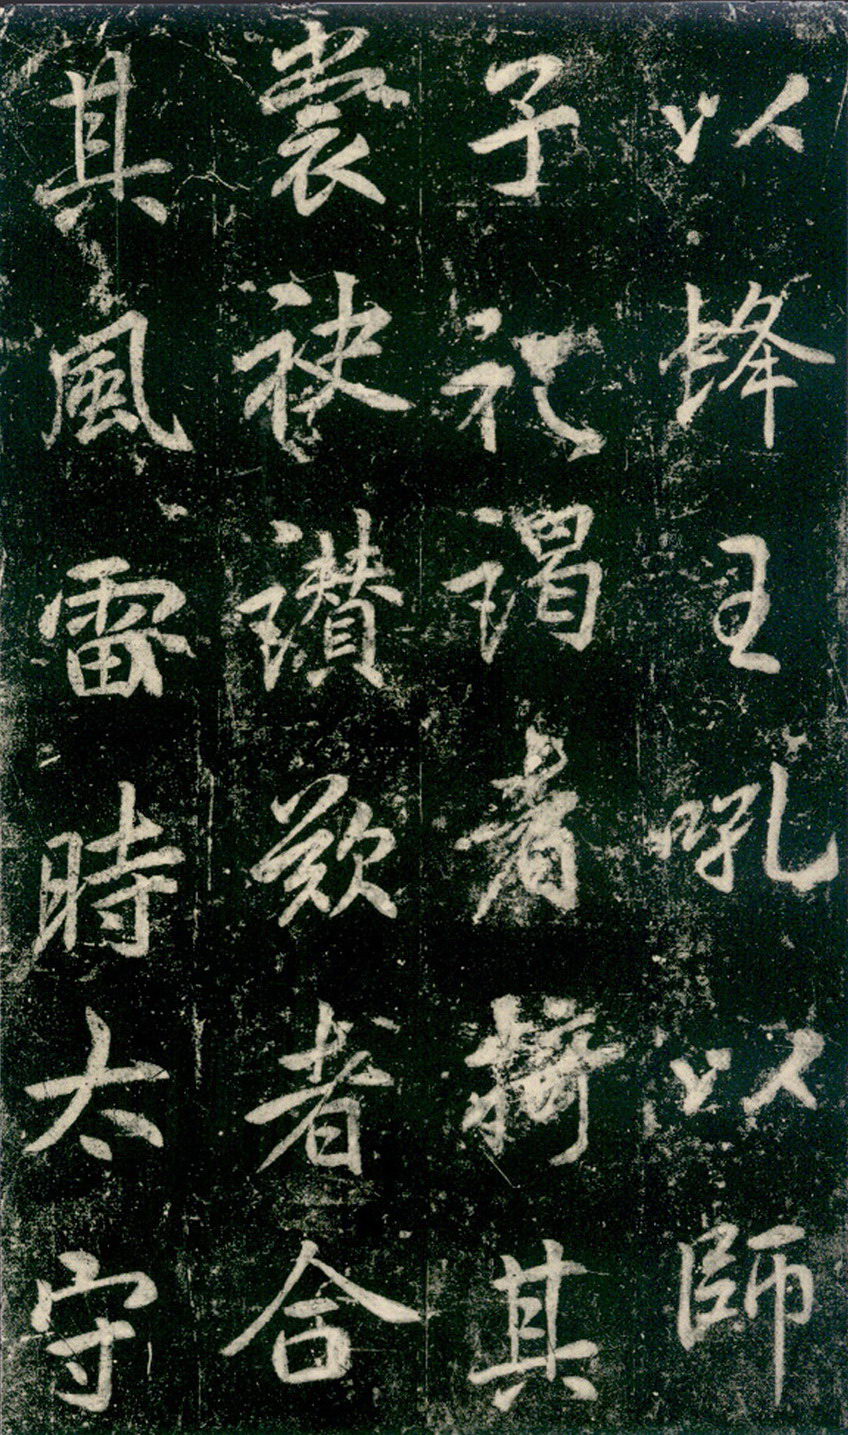 以蜂王吼以師
子礼謁者掎其
裳袂讚歎者合
其風雷時太守